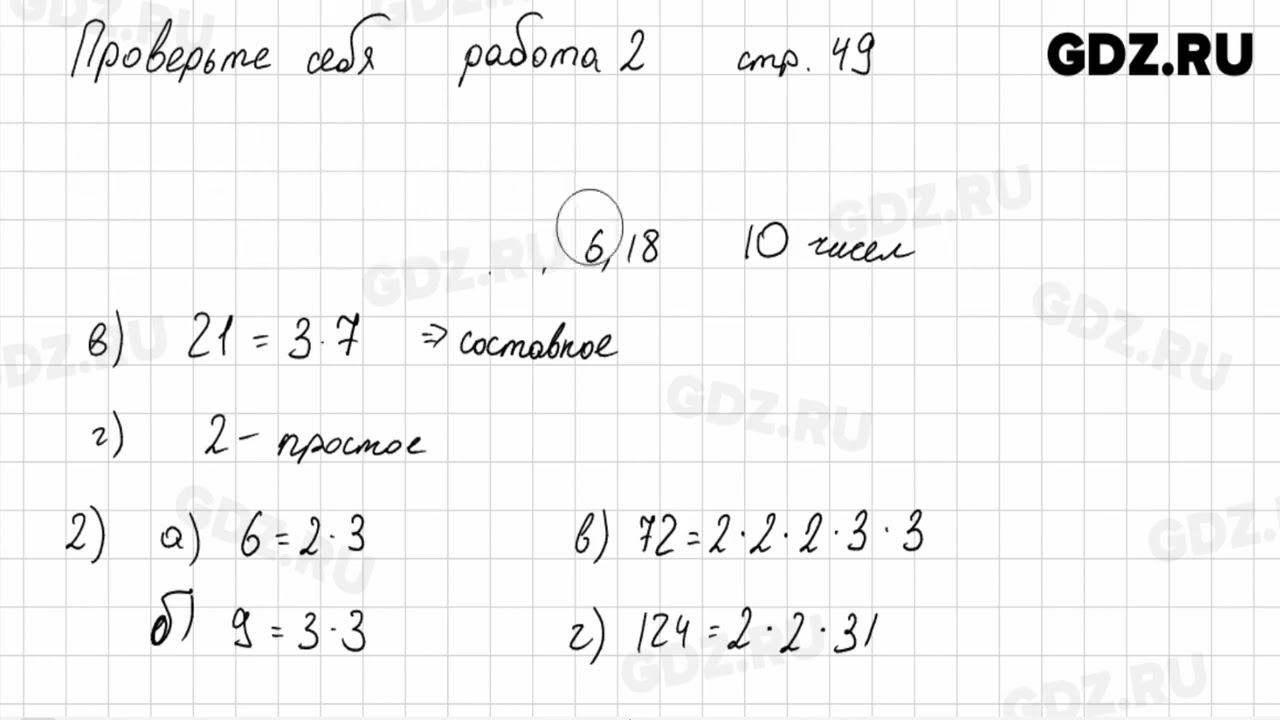 Проверьте себя работа 2 стр. 49 GDZ.RU
6, 18 10 чисел
в) 21 = 3·7 ⇒ составное
г) 2 – простое
2) а) 6 = 2·3 в) 72 = 2·2·2·3·3
б) 9 = 3·3 г) 124 = 2·2·31